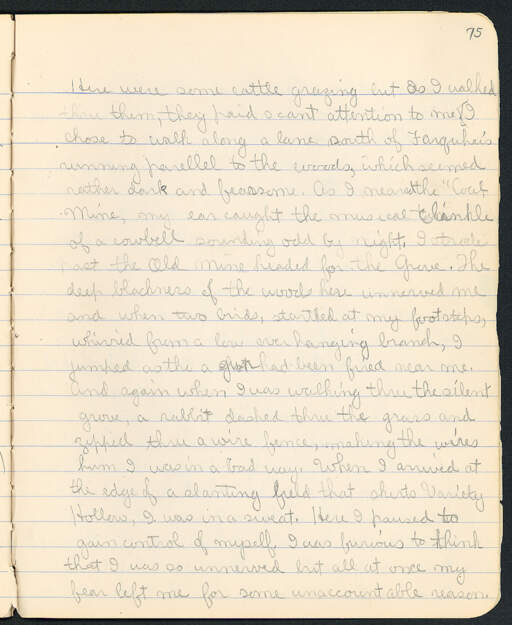 75
Here were some cattle grazing but as I walked
thru them, they paid scant attention to me. I
chose to walk along a lane south of Farquhar's
running parellel to the woods, which seemed
rather dark and fearsome. As I neared the "Coal
Mine, my ear caught the musical clankle
of a cowbell sounding odd by night. I strode
past the Old Mine headed for the Grove. The
deep blackness of the woods here unnerved me
and when two birds, startled at my footsteps,
whirred from a low overhanging branch, I
jumped as tho a had been fired near me.
And again when I was walking thru the silent
grove, a rabbit dashed thru the grass and
zipped thru a wire fence, making the wires
hum I was in a bad way. When I arrived at
the edge of a slanting field that skirts Variety
Hollow, I was in a sweat. Here I paused to
gain control of myself. I was furious to think
that I was so unnerved but all at once my
fear left me for some unaccountable reason.